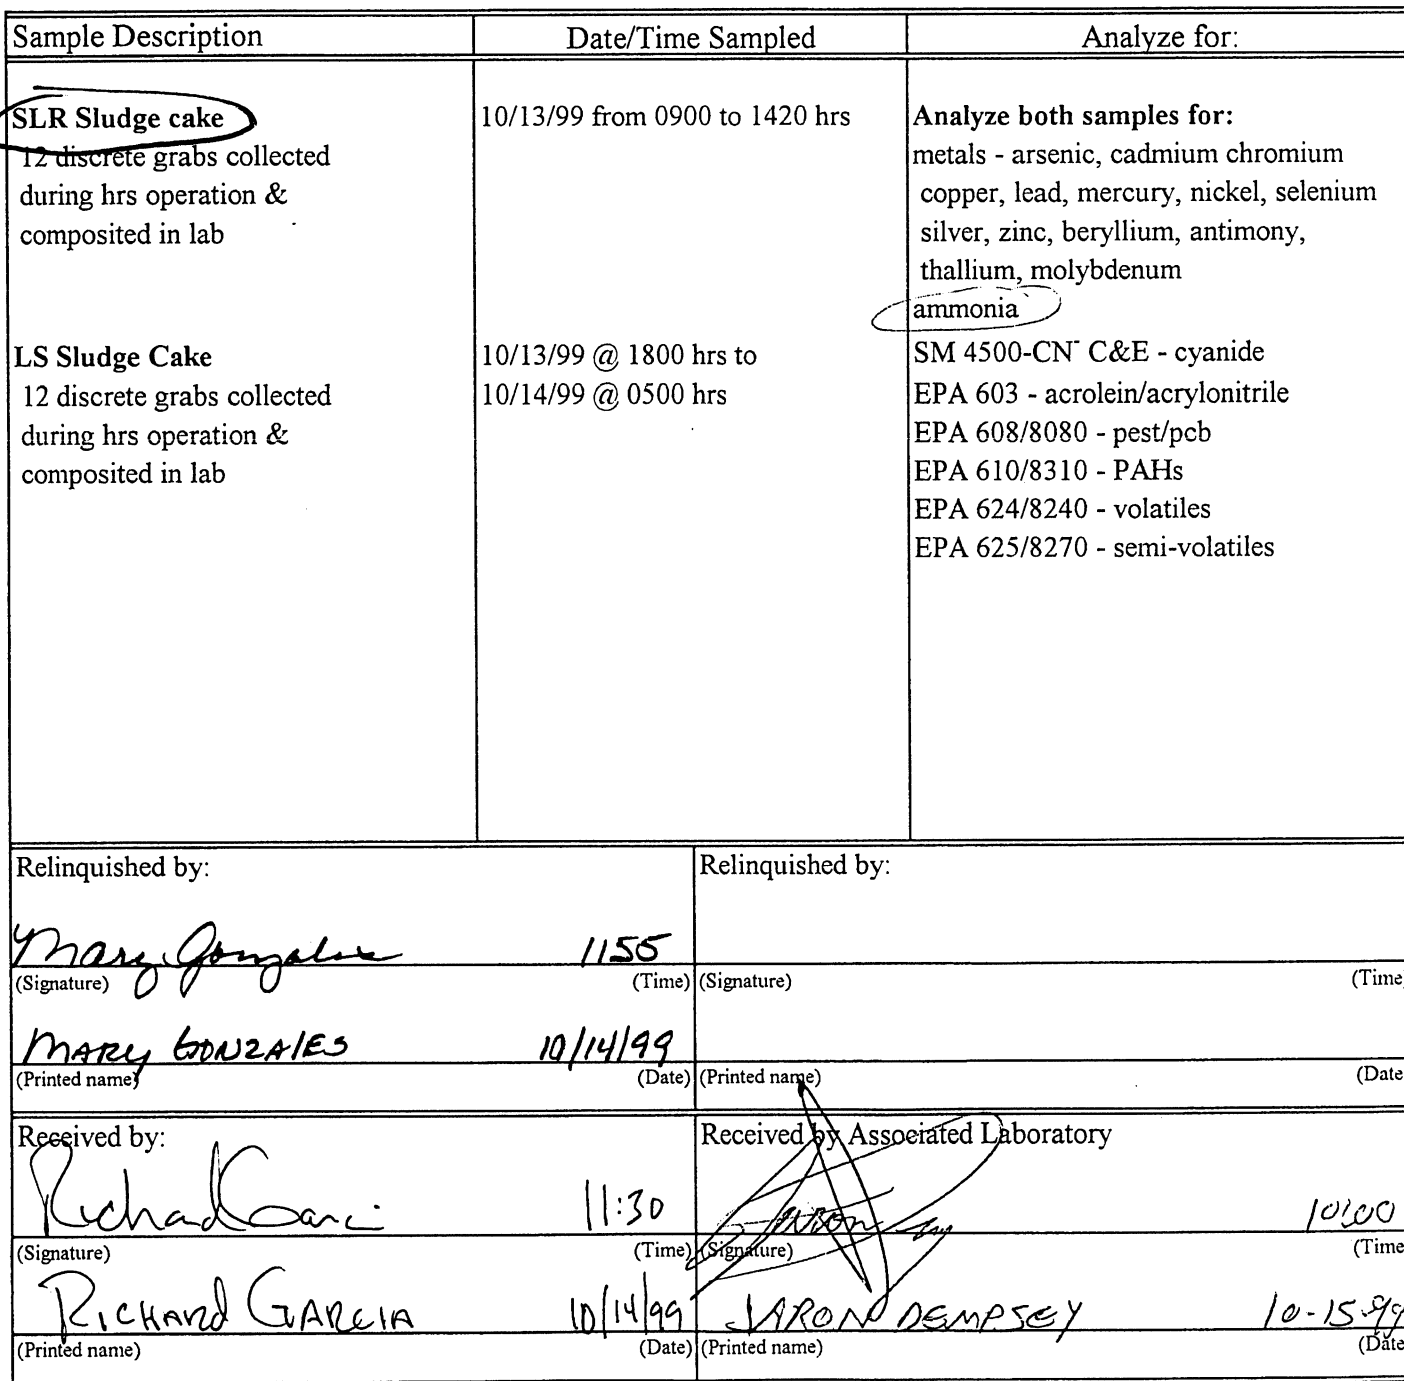 Sample Description
Date/Time Sampled
Analyze for:
SLR Sludge cake
12 discrete grabs collected
during hrs operation &
composited in lab
10/13/99 from 0900 to 1420 hrs
Analyze both samples for:
metals - arsenic, cadmium chromium
copper, lead, mercury, nickel, selenium
silver, zinc, beryllium, antimony,
thallium, molybdenum
ammonia
LS Sludge Cake
12 discrete grabs collected
during hrs operation &
composited in lab
10/13/99 @ 1800 hrs to
10/14/99 @ 0500 hrs
SM 4500-CN⁻ C&E - cyanide
EPA 603 - acrolein/acrylonitrile
EPA 608/8080 - pest/pcb
EPA 610/8310 - PAHs
EPA 624/8240 - volatiles
EPA 625/8270 - semi-volatiles
Relinquished by:
Mary Gonzales 1155
(Signature) (Time)
MARY GONZALES 10/14/99
(Printed name) (Date)
Relinquished by:
(Signature) (Time)
(Printed name) (Date
Received by:
Richard Garcia 11:30
(Signature) (Time)
RICHARD GARCIA 10/14/99
(Printed name) (Date)
Received by Associated Laboratory
10:00
(Signature) (Time
JARON DEMPSEY 10-15-99
(Printed name) (Date